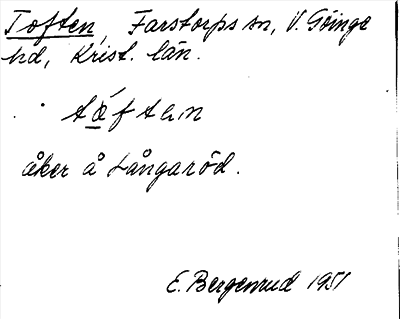 Toften, Farstorps sn, V. Göinge
hd, Krist. län.
tǫ́ftən
åker å Långaröd.
E. Bergenrud 1951